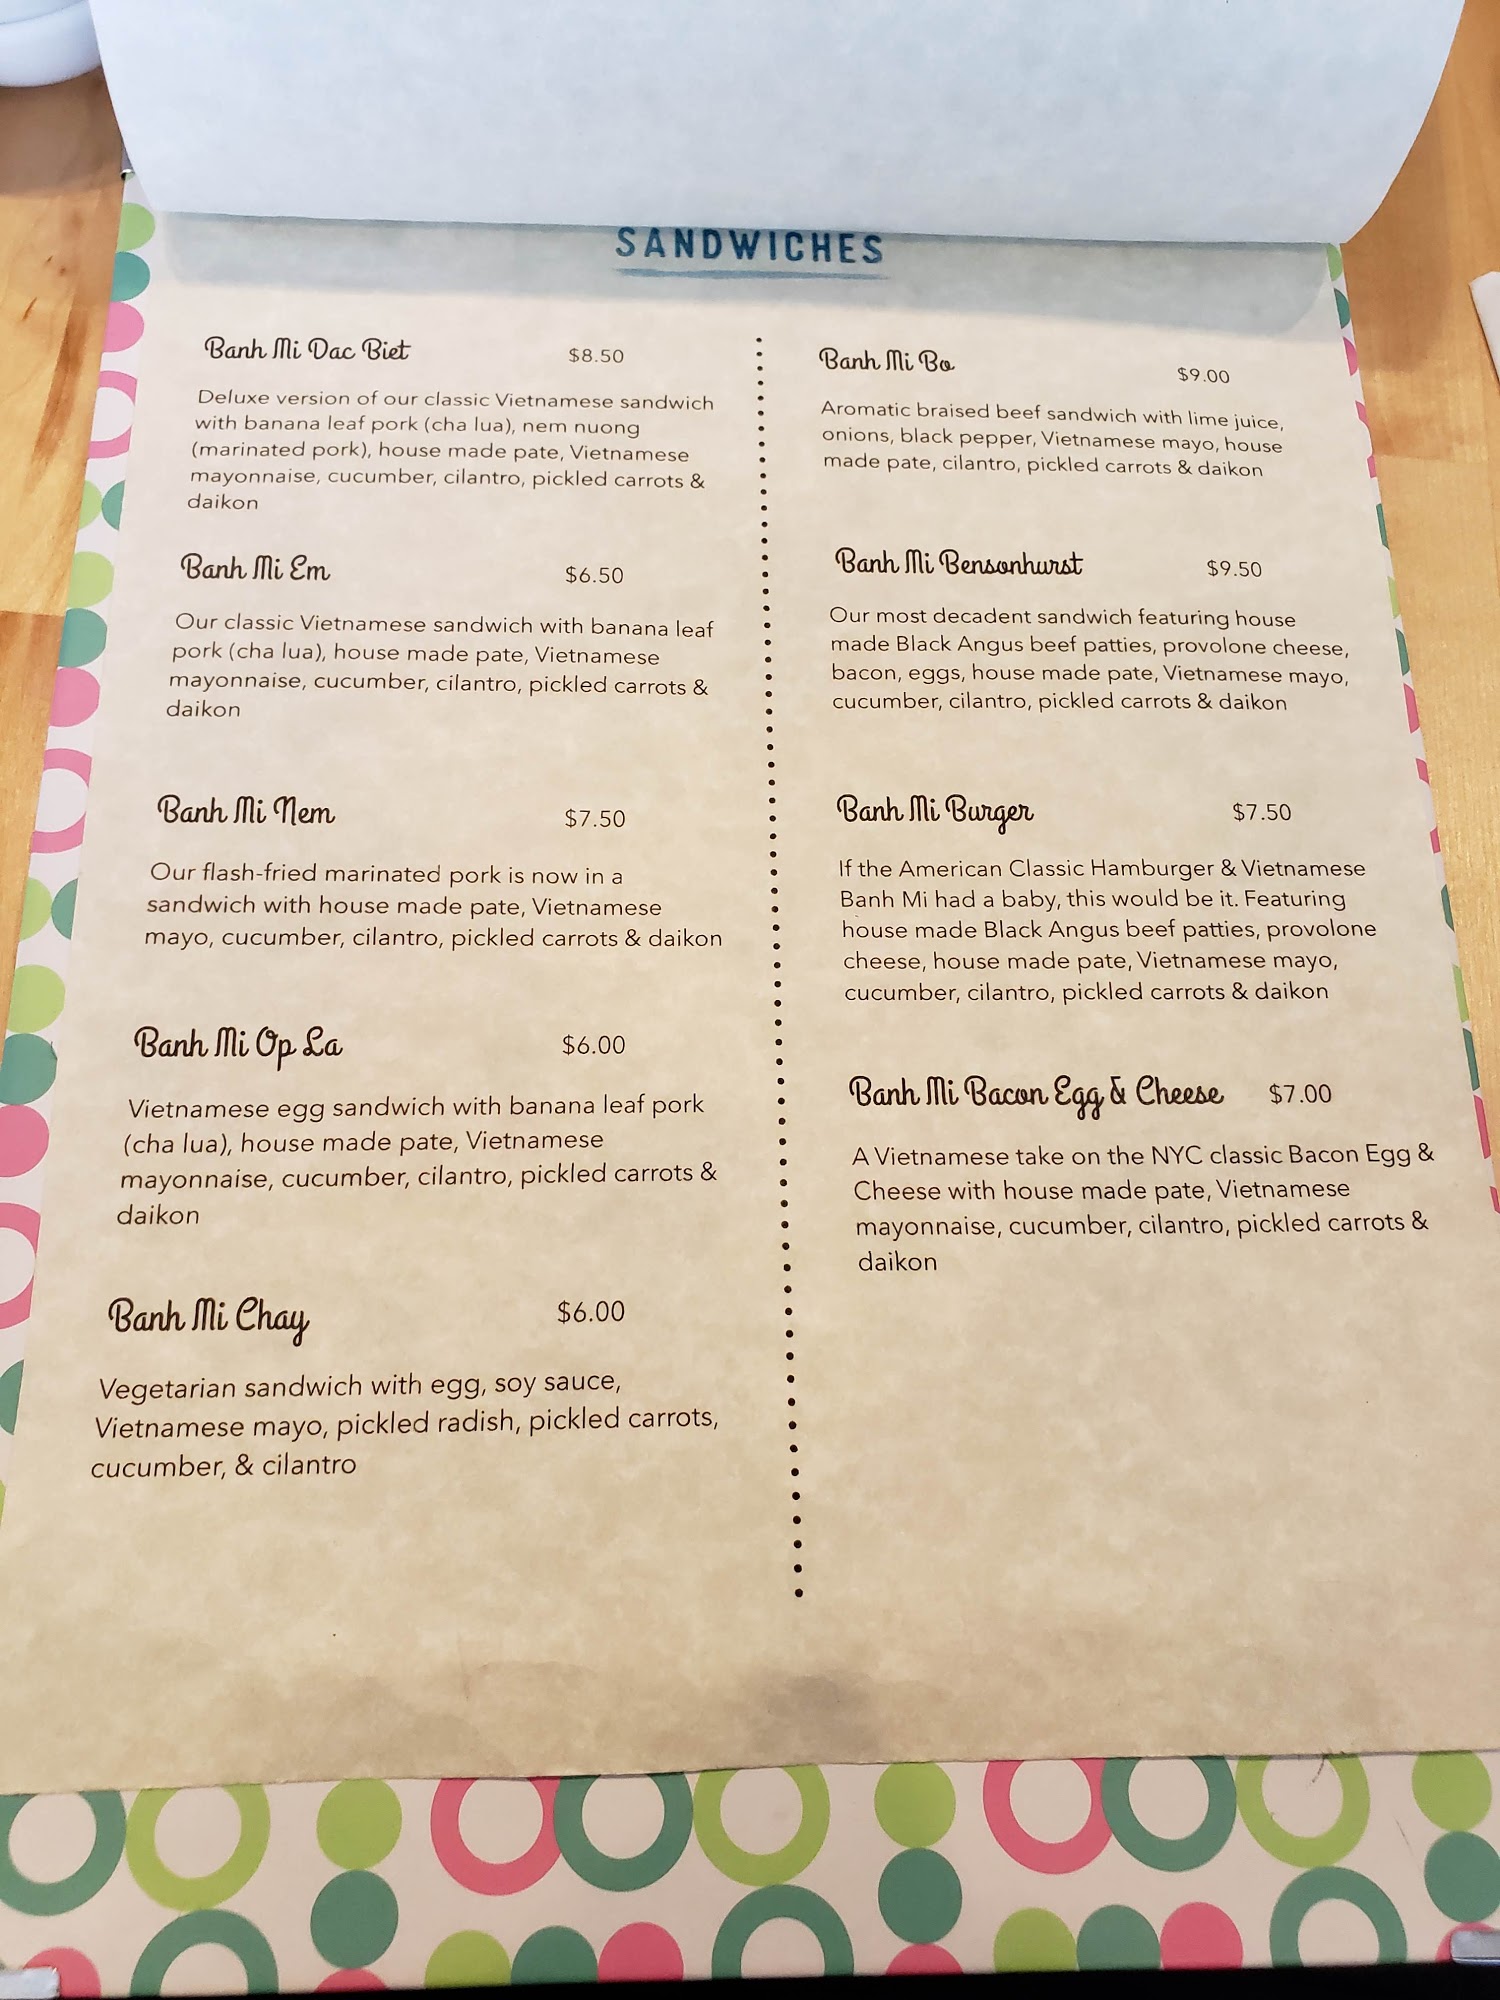 SANDWICHES
Banh Mi Dac Biet $8.50
Deluxe version of our classic Vietnamese sandwich
with banana leaf pork (cha lua), nem nuong
(marinated pork), house made pate, Vietnamese
mayonnaise, cucumber, cilantro, pickled carrots &
daikon
Banh Mi Em $6.50
Our classic Vietnamese sandwich with banana leaf
pork (cha lua), house made pate, Vietnamese
mayonnaise, cucumber, cilantro, pickled carrots &
daikon
Banh Mi Nem $7.50
Our flash-fried marinated pork is now in a
sandwich with house made pate, Vietnamese
mayo, cucumber, cilantro, pickled carrots & daikon
Banh Mi Op La $6.00
Vietnamese egg sandwich with banana leaf pork
(cha lua), house made pate, Vietnamese
mayonnaise, cucumber, cilantro, pickled carrots &
daikon
Banh Mi Chay $6.00
Vegetarian sandwich with egg, soy sauce,
Vietnamese mayo, pickled radish, pickled carrots,
cucumber, & cilantro
Banh Mi Bo $9.00
Aromatic braised beef sandwich with lime juice,
onions, black pepper, Vietnamese mayo, house
made pate, cilantro, pickled carrots & daikon
Banh Mi Bensonhurst $9.50
Our most decadent sandwich featuring house
made Black Angus beef patties, provolone cheese,
bacon, eggs, house made pate, Vietnamese mayo,
cucumber, cilantro, pickled carrots & daikon
Banh Mi Burger $7.50
If the American Classic Hamburger & Vietnamese
Banh Mi had a baby, this would be it. Featuring
house made Black Angus beef patties, provolone
cheese, house made pate, Vietnamese mayo,
cucumber, cilantro, pickled carrots & daikon
Banh Mi Bacon Egg & Cheese $7.00
A Vietnamese take on the NYC classic Bacon Egg &
Cheese with house made pate, Vietnamese
mayonnaise, cucumber, cilantro, pickled carrots &
daikon